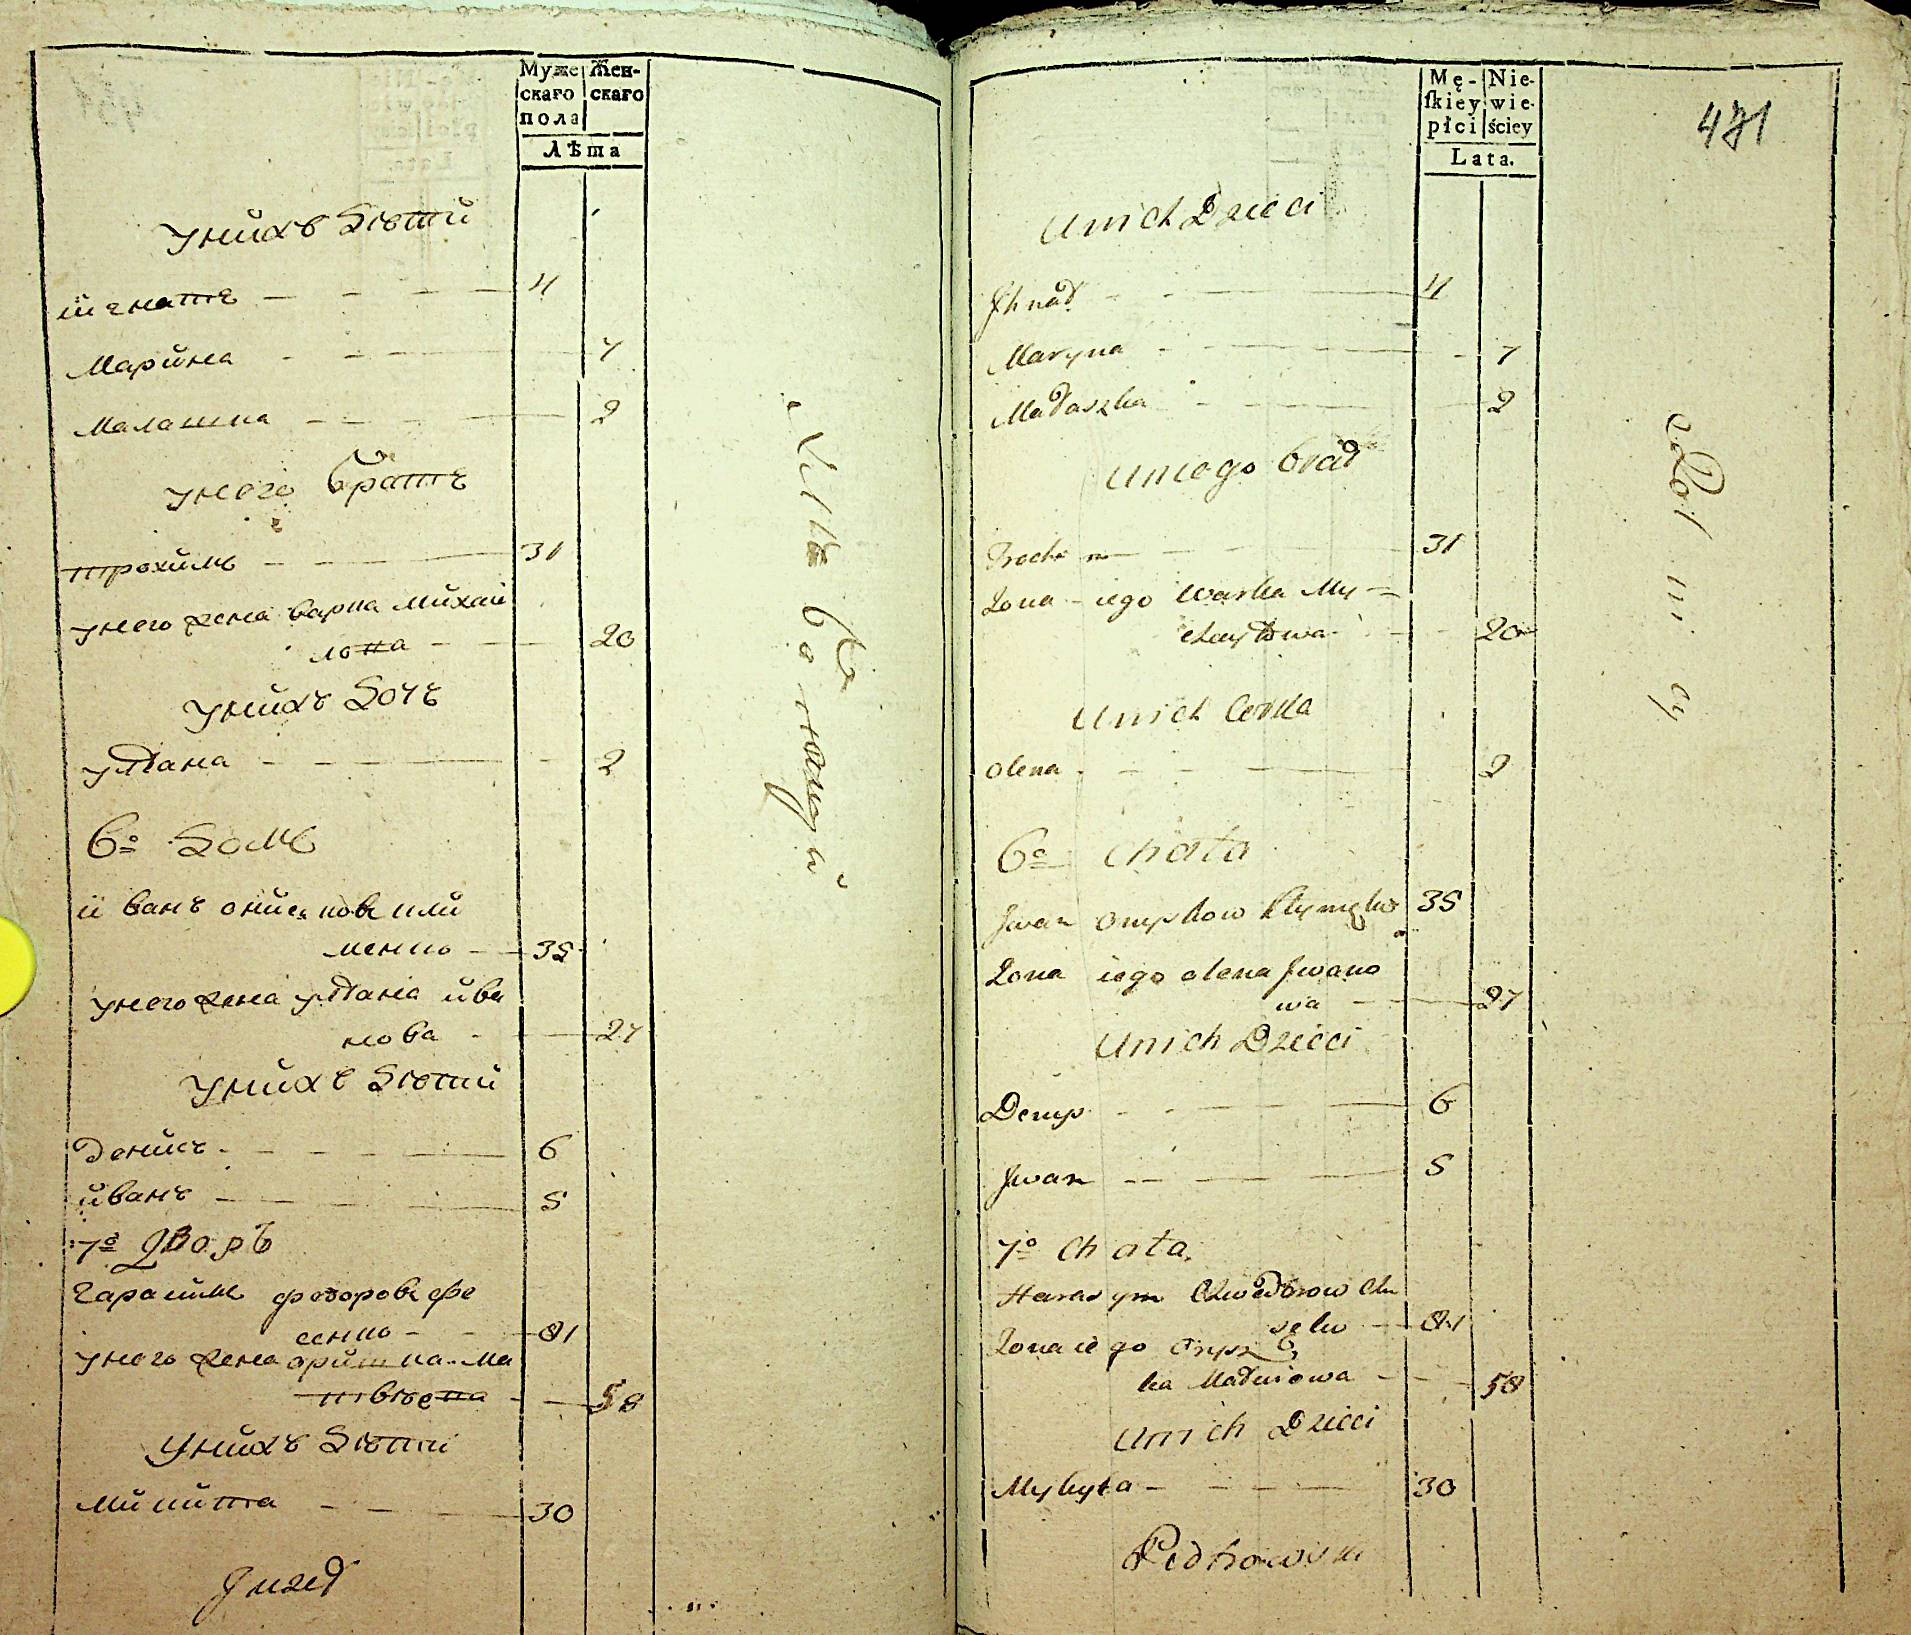 Муже Жен-
скаго скаго
пола
Лѣта
у нихъ дѣти
игнатъ 4
Марина 7
Малашка 2
у него братъ
трохимъ 31
у него жена варка михай
лова 20
у нихъ дочь
улiана 2
6º домъ
иванъ онисковъ кли
менко 35
у него жена улiана ива
нова 27
у нихъ дѣти
Денисъ 6
иванъ 5
7º дворъ
гарасимъ федоровъ фе
сенко 81
у него жена оришка ма
твѣева 58
у нихъ дѣти
микита 30
Mę- Nie-
ſkiey wie-
płci ściey
Lata.
471
U nich Dzieci
Jhnat 4
Maryna 7
Małaszka 2
U niego brat
Trochim 31
Zona iego Warka My
chayłowa 20
U nich Corka
Olena 2
6º Chata
Jwan Onyskow Klymenko 35
Zona iego Olena Jwano
wa 27
U nich Dzieci
Denys 6
Jwan 5
7º Chata
Harasym Chwedorow Chw
senko 81
Zona iego Orysz
ka Matwiowa 58
U nich Dzieci
Mykyta 30